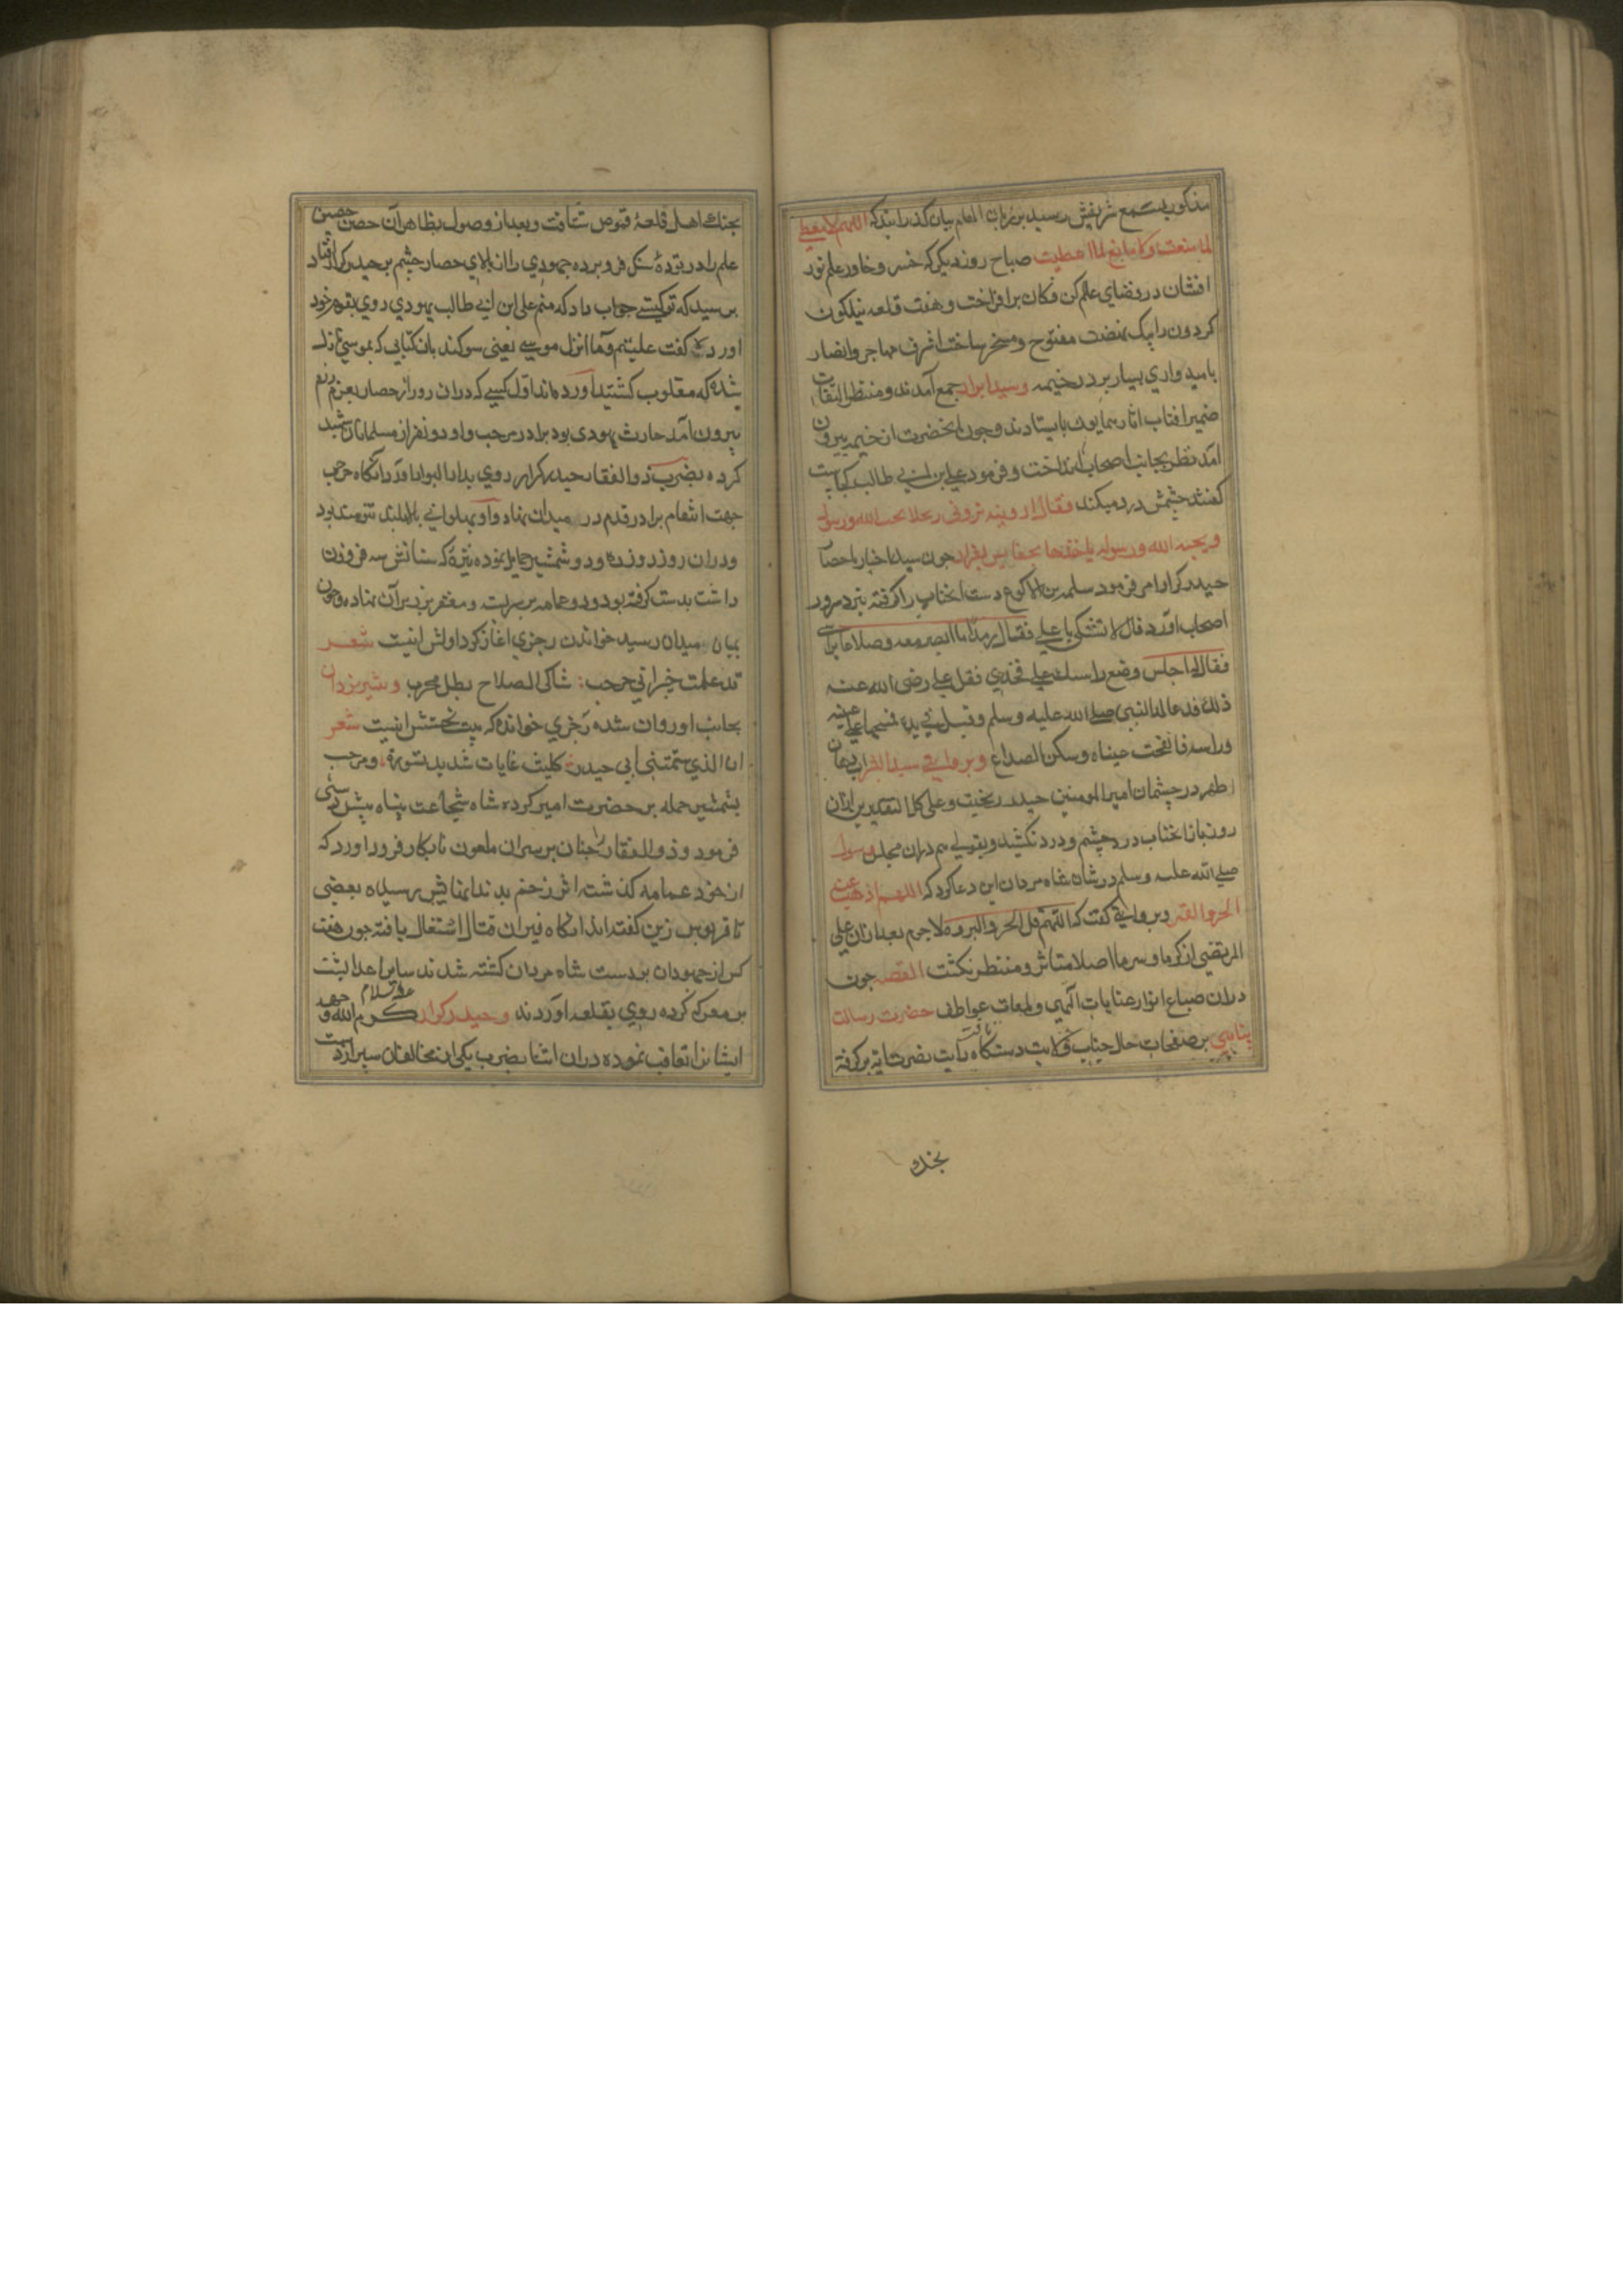 مذکور بسمع شریفش رسید بر زبان الهام بیان گذرانید که اللهم لا معطی
لما منعت ولا مانع لما اعطیت صباح روز دیگر که خسرو خاور علم نور
افشان در فضای عالم کن فکان برافراخت و هفت قلعه نیلگون
کردون را بیک نهضت مفتوح و مسخر ساخت اشرف مهاجر و انصار
بامیدواری بسیار بر در خیمه سید ابرار جمع آمدند و منتظر التفات
ضمیر افتاب اثار همایون بایستادند و چون انحضرت از خیمه بیرون
آمد نظر بجانب اصحاب انداخت و فرمود علی بن ابی طالب کجاست
گفتند چشمش درد میکند فقال ارونیه ترونی رجلا یحب الله ورسوله
ویحبه الله ورسوله یاخذها بحقا لیس بفرار چون سید اخیار باحضار
حیدر کرار امر فرمود سلمه بن الاکوع دست انجناب را گرفته بنزد سرور
اصحاب آورد قال لا تشتکی یا علی فقال رمد ما ابصر معه وصداعا براسی
فقال له اجلس وضع راسک علی فخذی فقل علی رضی الله عنه
ذلک فدعا له النبی صلی الله علیه وسلم وتفل فی یده فمسحها علی عینیه
وراسه فانفتحت عیناه وسکن الصداع و بروایتی سید البشر اب دهان
اطهر در چشمان امیر المومنین حیدر ریخت و علی کلا التقدیرین ازان
روز باز انجناب درد چشم و درد نکشید و بقولی هم دران مجلس رسول
صلی الله علیه وسلم در شان شاه مردان این دعا کرد که اللهم اذهب عنه
الحر والقر و بروایتی گفت که اللهم قه الحر والبرد لا جرم بعد ازان علی
المرتضی از گرما و سرما اصلا متاثر و منتظر نکشت القصه چون
دران صباح انوار عنایات الهی و لمعات عواطف حضرت رسالت
پناهی بر صفحات حال جناب ولایت دستگاه تافت رایت نصرت ایه برگرفته
بجنك
بجنك اهل قلعهٔ قموص شتافت و بعد از وصول بظاهر آن حصن حصین
علم را در تودهٔ سنگ فرو برده جهودی را از بالای حصار چشم بر حیدر کرار افتاد
پرسید که تو کیستی جواب داد که منم علی ابن ابی طالب یهودی روی بقوم خود
اورده گفت علیتم وما انزل موسی یعنی سوکند بان کتابی که بموسی نازل
شده که مغلوب کشتید آورده‌اند اول کسی که دران روز از حصار بعزم رزم
بیرون آمد حارث یهودی بود برادر مرحب و او دو نفر از مسلمانان شهید
کرده بضرب ذوالفقار حیدر کرار روی بدار البوار آورد آنگاه مرحب
جهت انتقام برادر قدم در میدان نهاد و او پهلوانی بلابلند تنومند بود
و دران روز دو زره و دو شمشیر حمایل نموده نیزهٔ که سنانش سه من وزن
داشت بدست گرفته بود و دو عمامه بر سر بست و مغفر بزبر آن نهاده و چون
بمیان میدان رسید خواندن رجزی اغاز کرد اولش اینست شعر
قد علمت خیبر انی مرحب؛ شاکی السلاح بطل مجرب و شیر یزدان
بجانب او روان شده رجزی خواند که بیت نخستش اینست شعر
انا الذی سمتنی امی حیدره؛ کلیث غابات شدید قسوره؛ و مرحب
بشمشیر حمله بر حضرت امیر کرده شاه شجاعت پناه پیش دستی
فرمود و ذوالفقار را چنان بر سر ان ملعون نابکار فرود اورد که
از خود عمامه گذشته اثر زخم بدندانهایش رسیده بعضی
تا قربوس زین گفته‌اند انگاه نیران قتال اشتعال یافته چون هفت
کس از جهودان بر دست شاه مردان کشته شدند سایر اعدا پشت
بر معرکه کرده روی بقلعه آوردند و حیدر کرار علیه السلام کرم الله وجهه
ایشانرا تعاقب نموده دران اثنا بضرب یکی از مخالفان سپر از دست